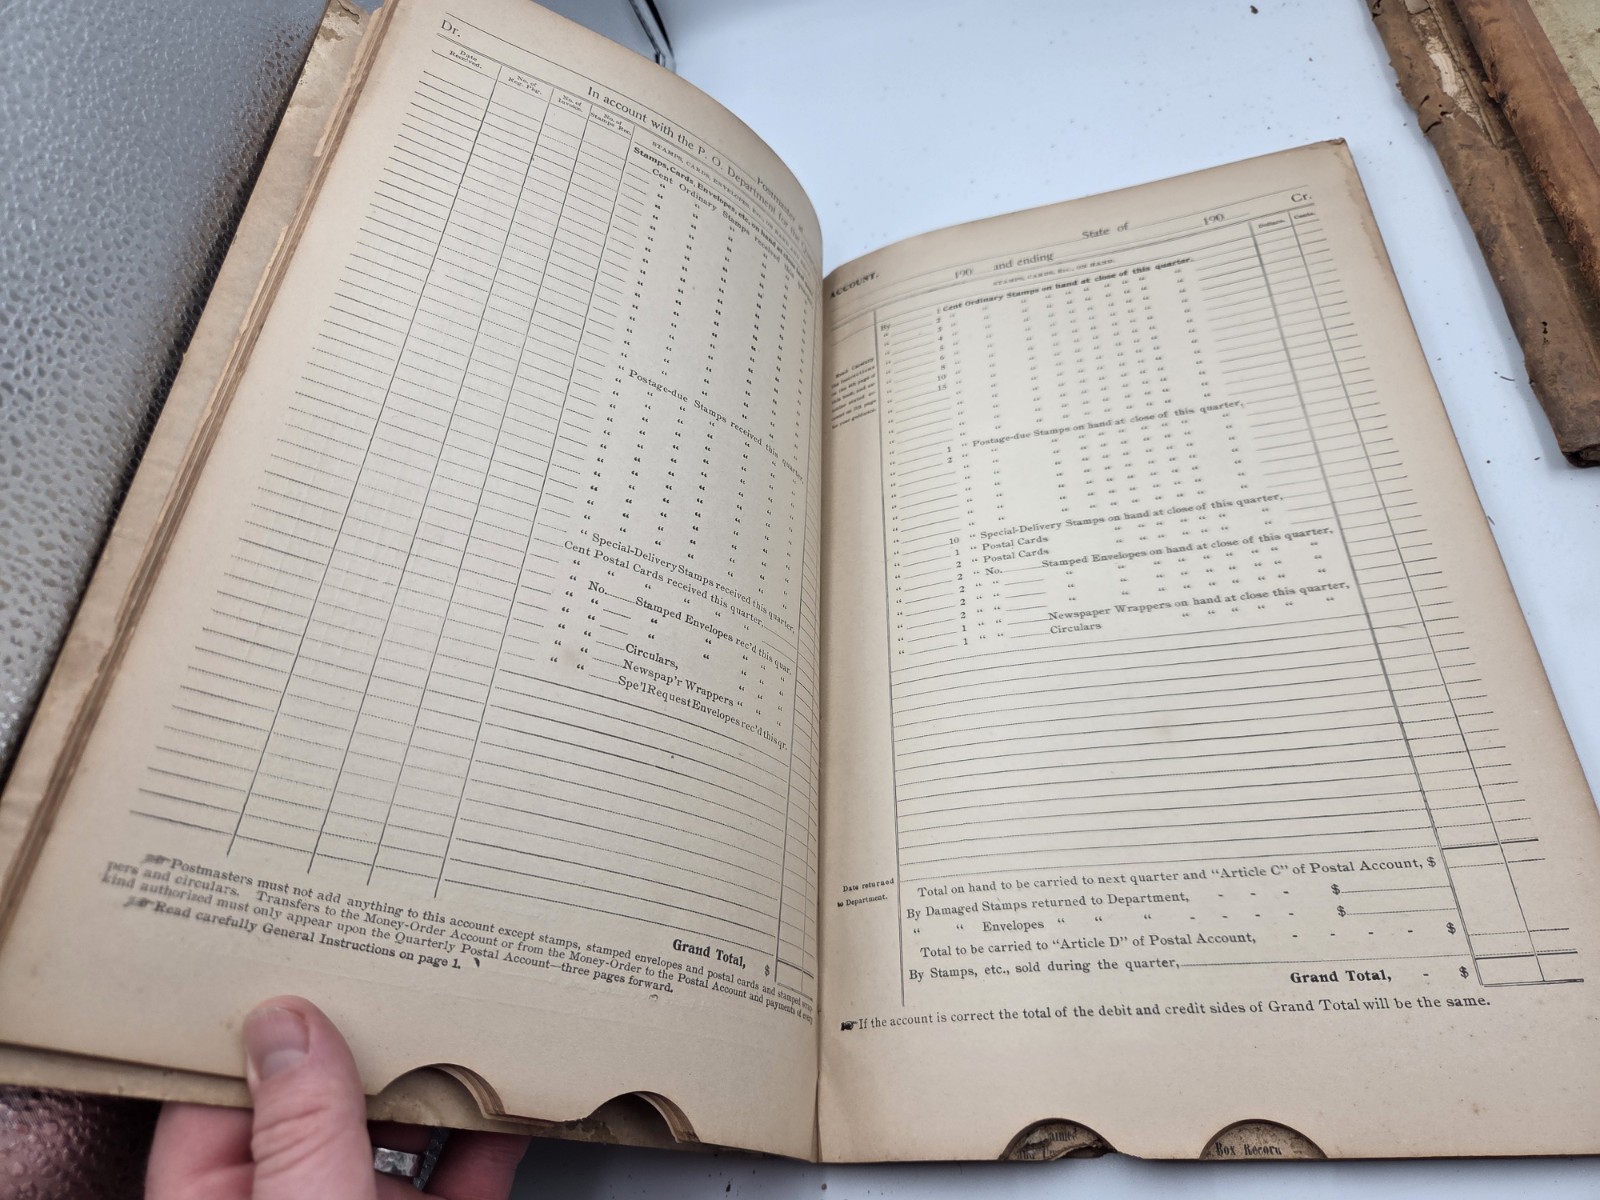 Dr.
Postmaster
In account with the P. O. Department for the
Date Received.
No. of Reg. Pkg.
No. of Invoice.
No. of Stamps Rec.
Stamps, Cards, Envelopes, etc., on hand at
Cent Ordinary Stamps received this
“ Postage-due Stamps received this quarter,
“ Special-Delivery Stamps received this quarter,
Cent Postal Cards received this quarter,
“ No. Stamped Envelopes rec'd this quar.
“ “ Circulars,
“ “ Newspap'r Wrappers “ “ “
“ “ Spe'l Request Envelopes rec'd this qr.
Grand Total, $
☛ Postmasters must not add anything to this account except stamps, stamped envelopes and postal cards and stamped
pers and circulars. Transfers to the Money-Order Account or from the Money-Order to the Postal Account and payments of every
kind authorized must only appear upon the Quarterly Postal Account—three pages forward.
☛ Read carefully General Instructions on page 1.
Cr.
State of 190
ACCOUNT. 190 and ending
STAMPS, CARDS, &C., ON HAND.
Dollars. Cents.
By 1 Cent Ordinary Stamps on hand at close of this quarter.
“ 2 “ “ “ “ “ “ “ “
“ 3 “ “ “ “ “ “ “ “
“ 4 “ “ “ “ “ “ “ “
“ 5 “ “ “ “ “ “ “ “
“ 6 “ “ “ “ “ “ “ “
“ 8 “ “ “ “ “ “ “ “
“ 10 “ “ “ “ “ “ “ “
“ 15 “ “ “ “ “ “ “ “
“ 1 “ Postage-due Stamps on hand at close of this quarter,
“ 2 “ “ “ “ “ “ “ “
“ 10 “ Special-Delivery Stamps on hand at close of this quarter,
“ 1 “ Postal Cards “ “ “ “ “ “
“ 2 “ Postal Cards
“ 2 “ No. Stamped Envelopes on hand at close of this quarter,
“ 2 “ “ “ “ “ “ “ “
“ 2 “ “ “ “ “ “ “ “
“ 2 “ “
“ 1 “ “ Newspaper Wrappers on hand at close this quarter,
“ 1 “ “ Circulars “ “ “ “ “
Date returned
to Department.
Total on hand to be carried to next quarter and “Article C” of Postal Account, $
By Damaged Stamps returned to Department, - - - $
“ “ Envelopes “ “ “ - - - - $
Total to be carried to “Article D” of Postal Account, - - - - $
By Stamps, etc., sold during the quarter,
Grand Total, - $
☛ If the account is correct the total of the debit and credit sides of Grand Total will be the same.
Box Record